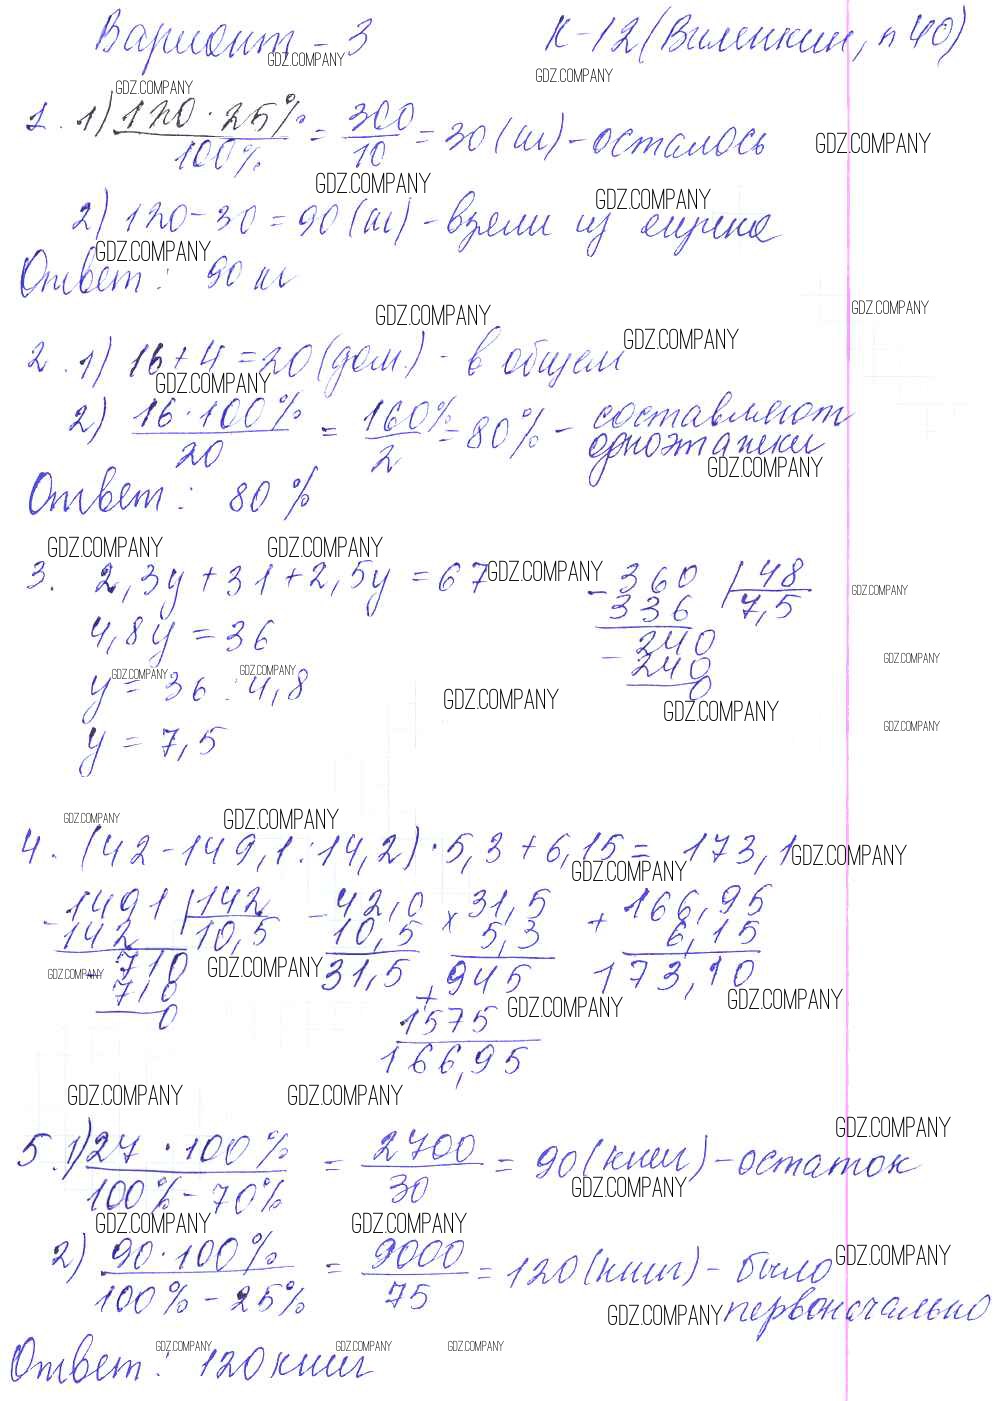 Вариант - 3 К-12 (Виленкин, п 40)
GDZ.COMPANY GDZ.COMPANY
GDZ.COMPANY
1. 1) 120 · 25% / 100% = 300 / 10 = 30 (ш) - осталось
GDZ.COMPANY
GDZ.COMPANY GDZ.COMPANY
2) 120 - 30 = 90 (ш) - взяли из ящика
GDZ.COMPANY
Ответ: 90 ш
GDZ.COMPANY GDZ.COMPANY GDZ.COMPANY
2. 1) 16 + 4 = 20 (дом.) - в общем
GDZ.COMPANY
2) 16 · 100% / 20 = 160% / 2 = 80% - составляют
одноэтажки
GDZ.COMPANY
Ответ: 80 %
GDZ.COMPANY GDZ.COMPANY
3. 2,3y + 31 + 2,5y = 67 GDZ.COMPANY - 360 | 48
336 7,5
GDZ.COMPANY
4,8y = 36 240
- 240
0
GDZ.COMPANY GDZ.COMPANY GDZ.COMPANY
y = 36 : 4,8
GDZ.COMPANY GDZ.COMPANY GDZ.COMPANY
y = 7,5
GDZ.COMPANY GDZ.COMPANY
4. (42 - 149,1 : 14,2) · 5,3 + 6,15 = 173,1
GDZ.COMPANY GDZ.COMPANY
- 1491 | 142 - 42,0 × 31,5 + 166,95
142 10,5 10,5 5,3 6,15
710 31,5 945 173,10
710 + 1575
0 166,95
GDZ.COMPANY GDZ.COMPANY GDZ.COMPANY GDZ.COMPANY
GDZ.COMPANY GDZ.COMPANY
GDZ.COMPANY
5. 1) 27 · 100% / 100% - 70% = 2700 / 30 = 90 (книг) - остаток
GDZ.COMPANY
GDZ.COMPANY GDZ.COMPANY
2) 90 · 100% / 100% - 25% = 9000 / 75 = 120 (книг) - было
GDZ.COMPANY
GDZ.COMPANY первоначально
GDZ.COMPANY GDZ.COMPANY GDZ.COMPANY
Ответ: 120 книг